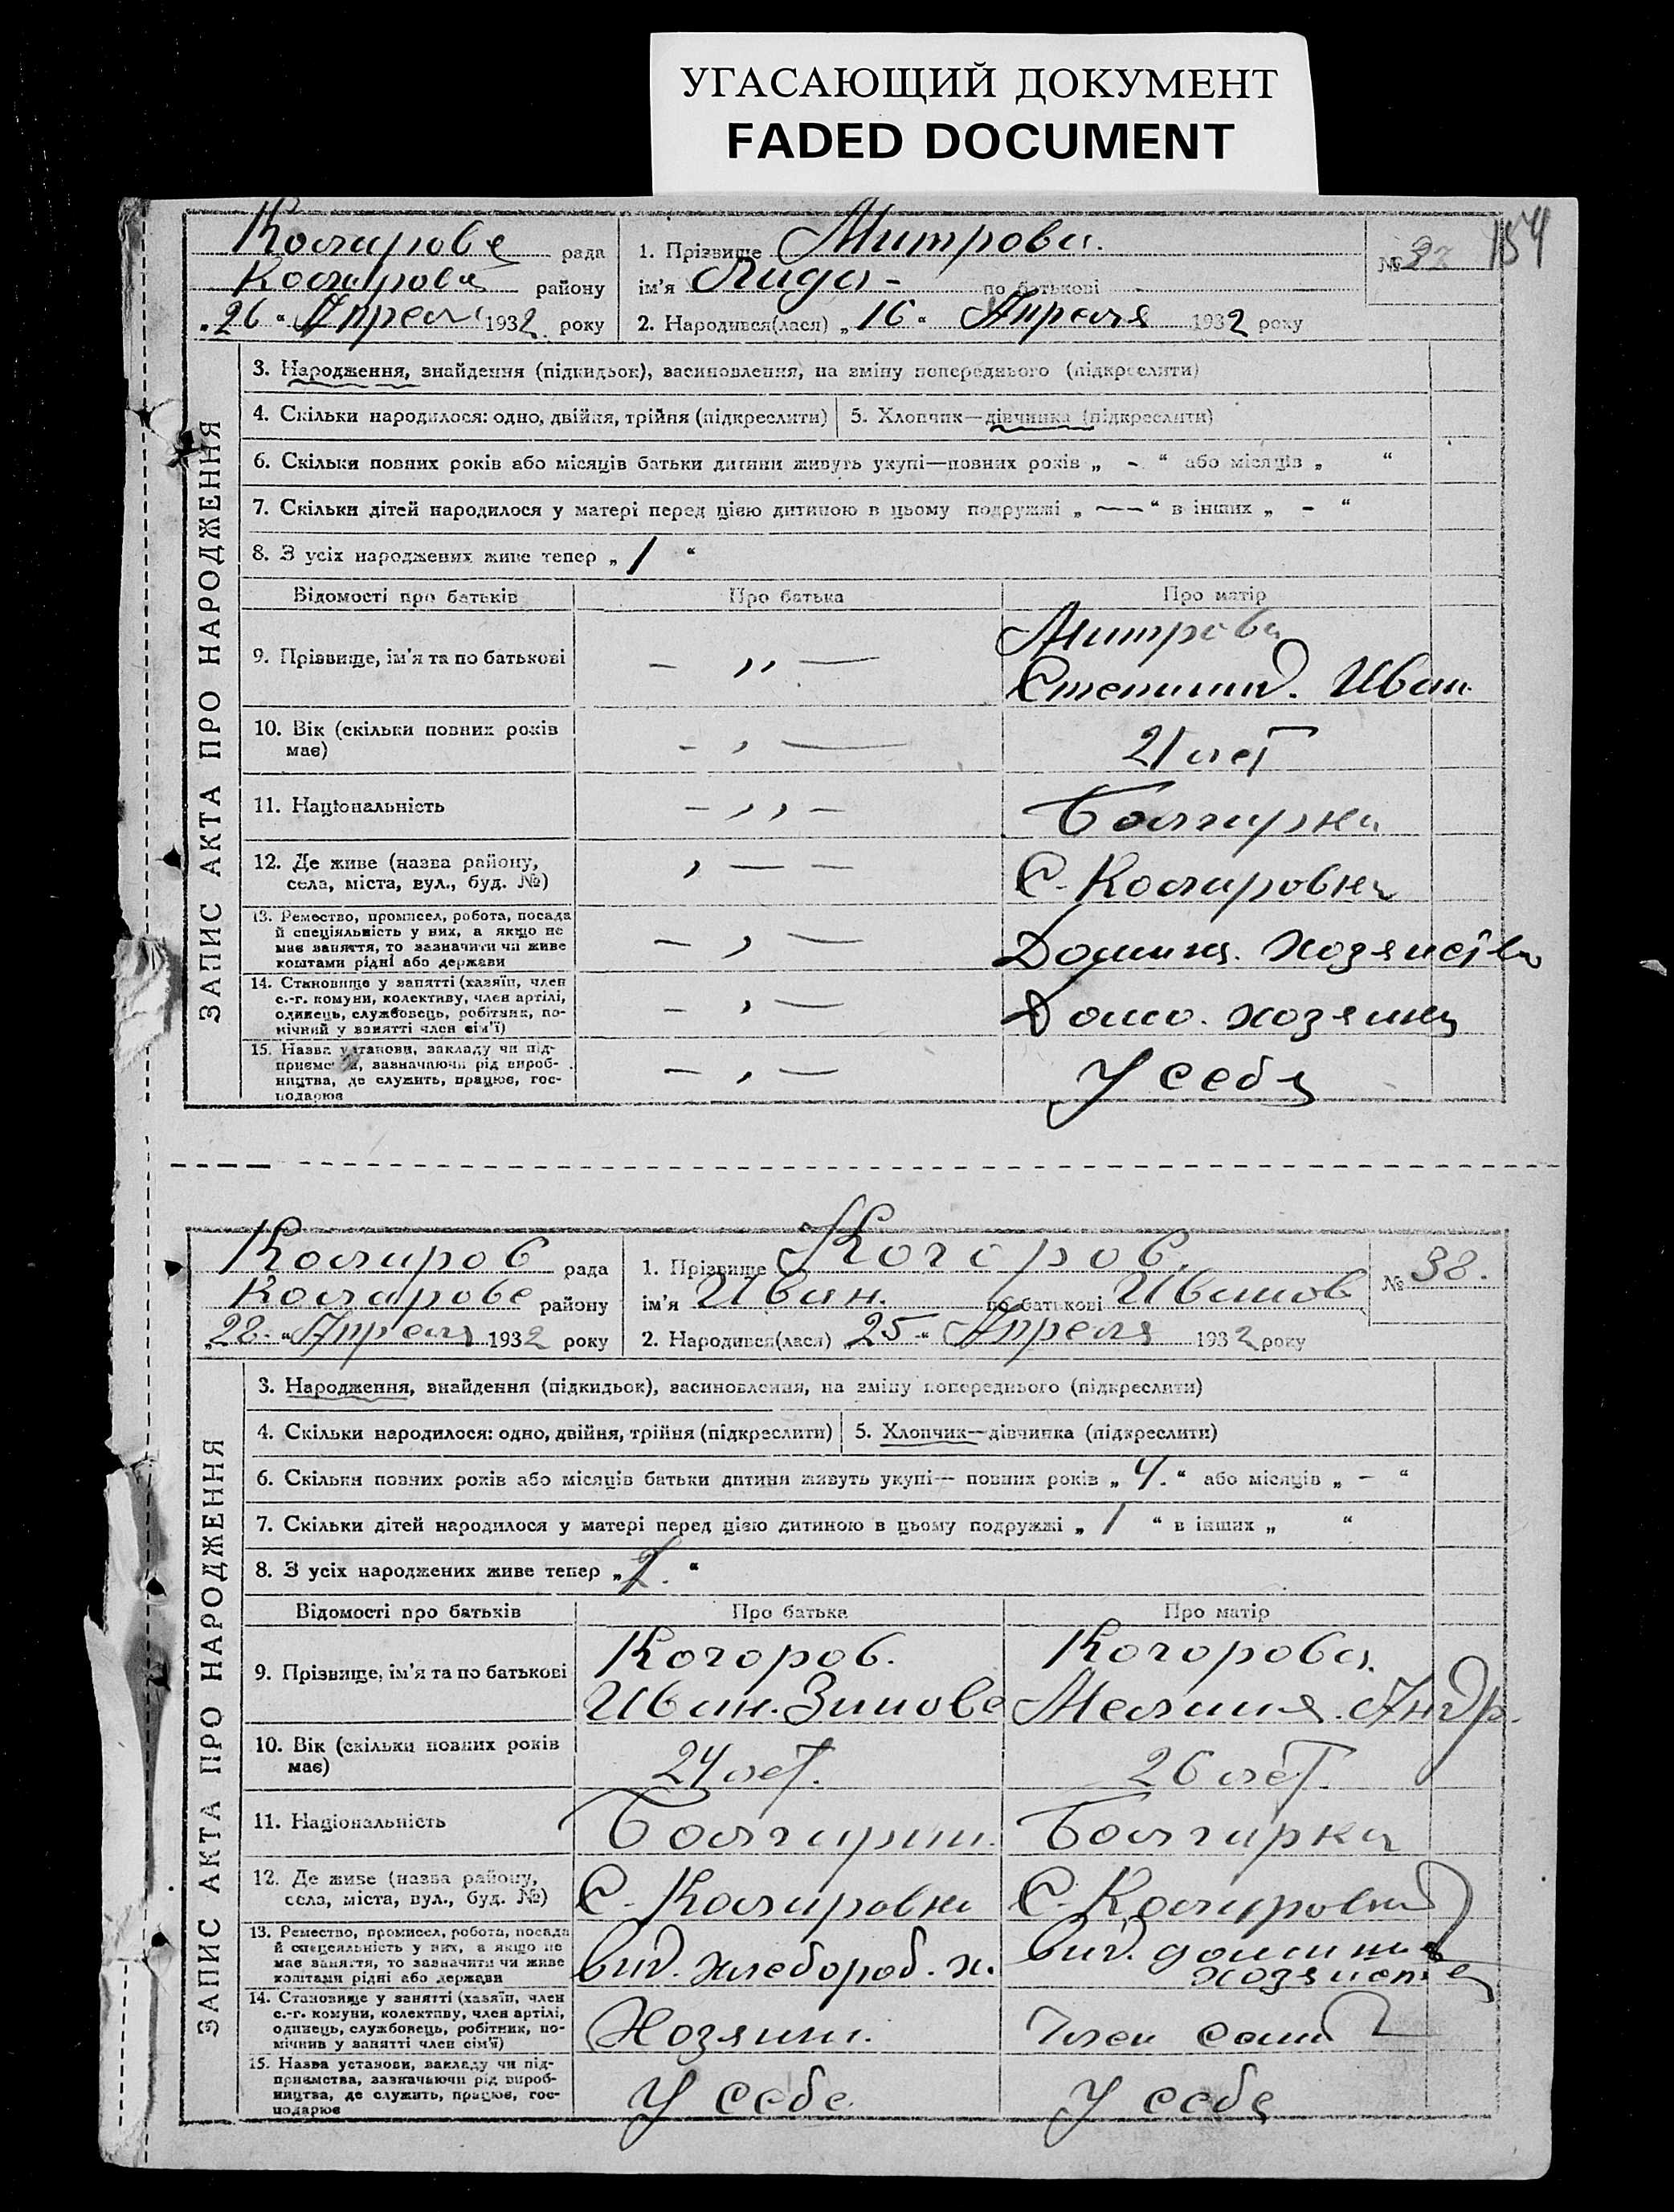 УГАСАЮЩИЙ ДОКУМЕНТ
FADED DOCUMENT
154
Коларове рада
Коларовск району
„26“ Апреля 1932 року
1. Прізвище Митрова.
ім'я Лида - по батькові -
2. Народився(лася) „16“ Апреля 1932 року
№
ЗАПИС АКТА ПРО НАРОДЖЕННЯ
3. Народження, знайдення (підкидьок), засиновлення, на зміну попереднього (підкреслити)
4. Скільки народилося: одно, двійня, трійня (підкреслити)
5. Хлопчик—дівчинка (підкреслити)
6. Скільки повних років або місяців батьки дитини живуть укупі—повних років „ - “ або місяців „ “
7. Скільки дітей народилося у матері перед цією дитиною в цьому подружжі „ — “ в інших „ - “
8. З усіх народжених живе тепер „ 1 “
Відомості про батьків
Про батька
Про матір
9. Прізвище, ім'я та по батькові
— „ —
Митрова
Степанид. Иван.
10. Вік (скільки повних років
має)
- , —
21 лет
11. Національність
- ,, -
Болгарка
12. Де живе (назва району,
села, міста, вул., буд. №)
, — —
С. Коларовка
13. Ремество, промисел, робота, посада
й спеціяльність у них, а якщо не
має заняття, то зазначити чи живе
коштами рідні або держави
— , —
Домашн. хозяйство
14. Становище у занятті (хазяїн, член
с.-г. комуни, колективу, член артілі,
одинець, службовець, робітник, по-
мічний у занятті член сім'ї)
- , —
Домо. хозяйка
15. Назва установи, закладу чи під-
приємства, зазначаючи рід вироб-
ництва, де служить, працює, гос-
подарює
— , —
У себя
Коларов рада
Коларове району
„28“ Апреля 1932 року
1. Прізвище Когоров.
ім'я Иван. по батькові Иванов
2. Народився(лася) „25“ Апреля 1932 року
№ 38.
ЗАПИС АКТА ПРО НАРОДЖЕННЯ
3. Народження, знайдення (підкидьок), засиновлення, на зміну попереднього (підкреслити)
4. Скільки народилося: одно, двійня, трійня (підкреслити)
5. Хлопчик—дівчинка (підкреслити)
6. Скільки повних років або місяців батьки дитини живуть укупі— повних років „ 4. “ або місяців „ - “
7. Скільки дітей народилося у матері перед цією дитиною в цьому подружжі „ 1 “ в інших „ “
8. З усіх народжених живе тепер „ 2. “
Відомості про батьків
Про батька
Про матір
9. Прізвище, ім'я та по батькові
Когоров.
Иван. Зинове
Когорова.
Мелания. Андр.
10. Вік (скільки повних років
має)
24 лет.
26 лет.
11. Національність
Болгарин.
Болгарка
12. Де живе (назва району,
села, міста, вул., буд. №)
С. Коларовка
С. Коларовка
13. Ремество, промисел, робота, посада
й спеціяльність у них, а якщо не
має заняття, то зазначити чи живе
коштами рідні або держави
хлебороб. х.
14. Становище у занятті (хазяїн, член
с.-г. комуни, колективу, член артілі,
одинець, службовець, робітник, по-
мічний у занятті член сім'ї)
Хозяин.
Член семи
15. Назва установи, закладу чи під-
приємства, зазначаючи рід вироб-
ництва, де служить, працює, гос-
подарює
У себе.
У себя